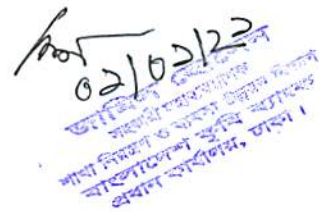 ০২/০২/২২
সহকারী মহাব্যবস্থাপক
শাখা নিয়ন্ত্রণ ও ব্যবসা উন্নয়ন বিভাগ
বাংলাদেশ কৃষি ব্যাংক
প্রধান কার্যালয়, ঢাকা।